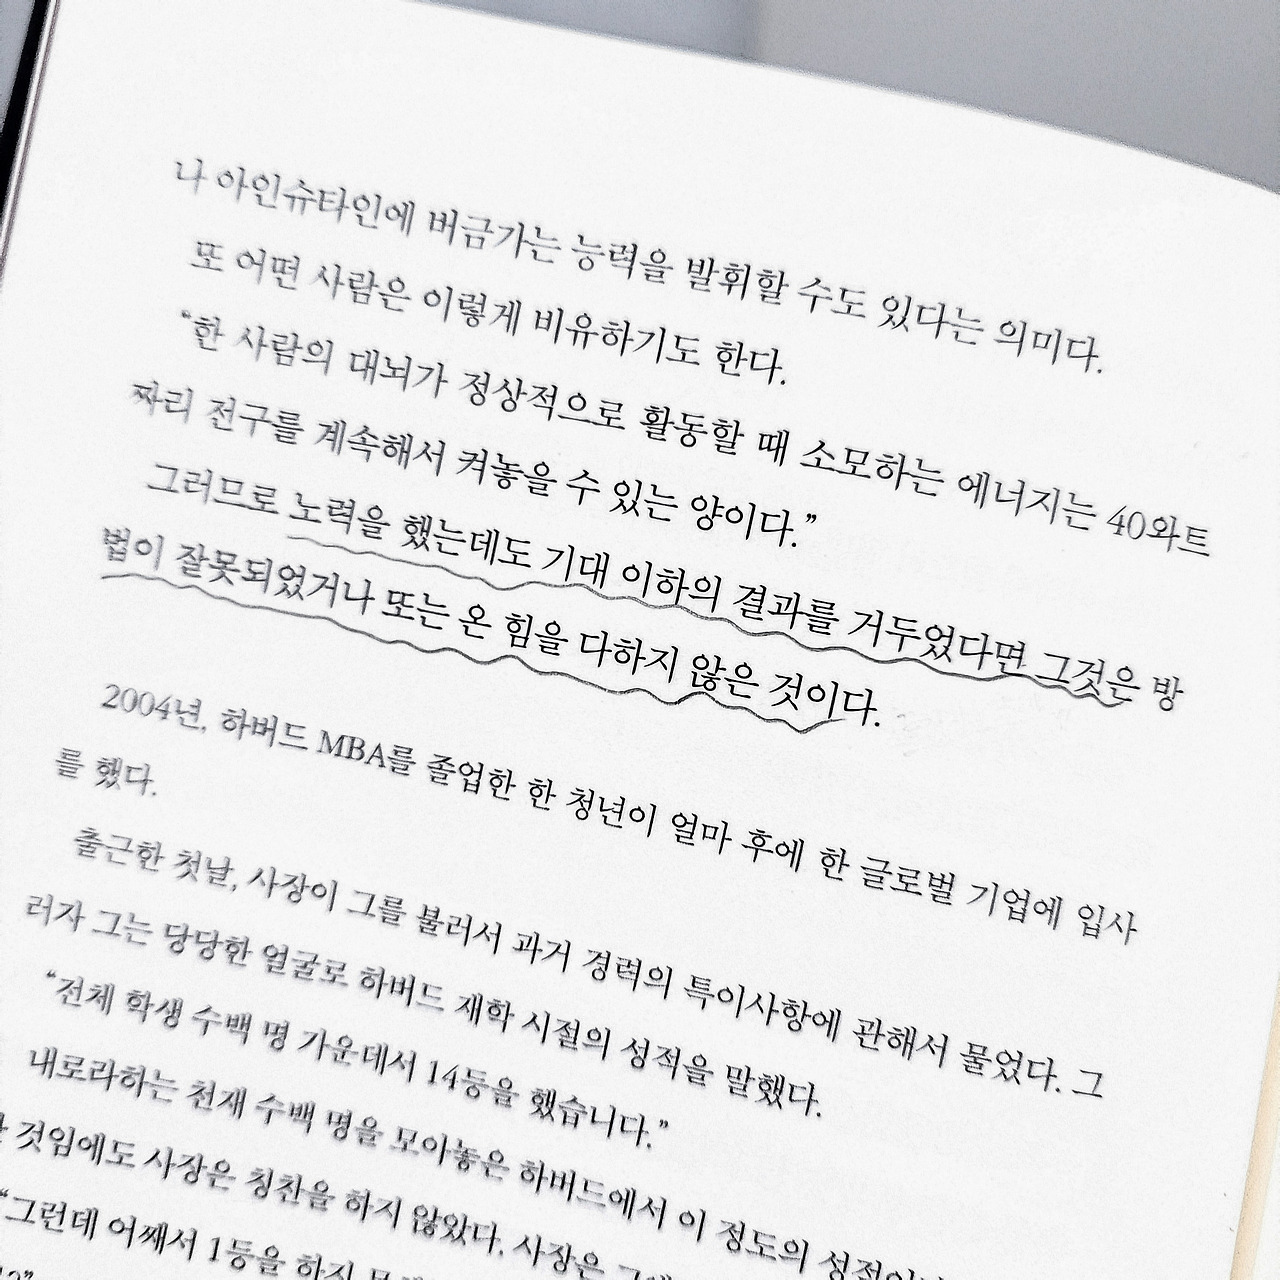 나 아인슈타인에 버금가는 능력을 발휘할 수도 있다는 의미다.
또 어떤 사람은 이렇게 비유하기도 한다.
“한 사람의 대뇌가 정상적으로 활동할 때 소모하는 에너지는 40와트
짜리 전구를 계속해서 켜놓을 수 있는 양이다.”
그러므로 노력을 했는데도 기대 이하의 결과를 거두었다면 그것은 방
법이 잘못되었거나 또는 온 힘을 다하지 않은 것이다.
2004년, 하버드 MBA를 졸업한 한 청년이 얼마 후에 한 글로벌 기업에 입사
를 했다.
출근한 첫날, 사장이 그를 불러서 과거 경력의 특이사항에 관해서 물었다. 그
러자 그는 당당한 얼굴로 하버드 재학 시절의 성적을 말했다.
“전체 학생 수백 명 가운데서 14등을 했습니다.”
내로라하는 천재 수백 명을 모아놓은 하버드에서 이 정도의
것임에도 사장은 칭찬을 하지 않았다. 사장은
“그런데 어째서 1등을 하지